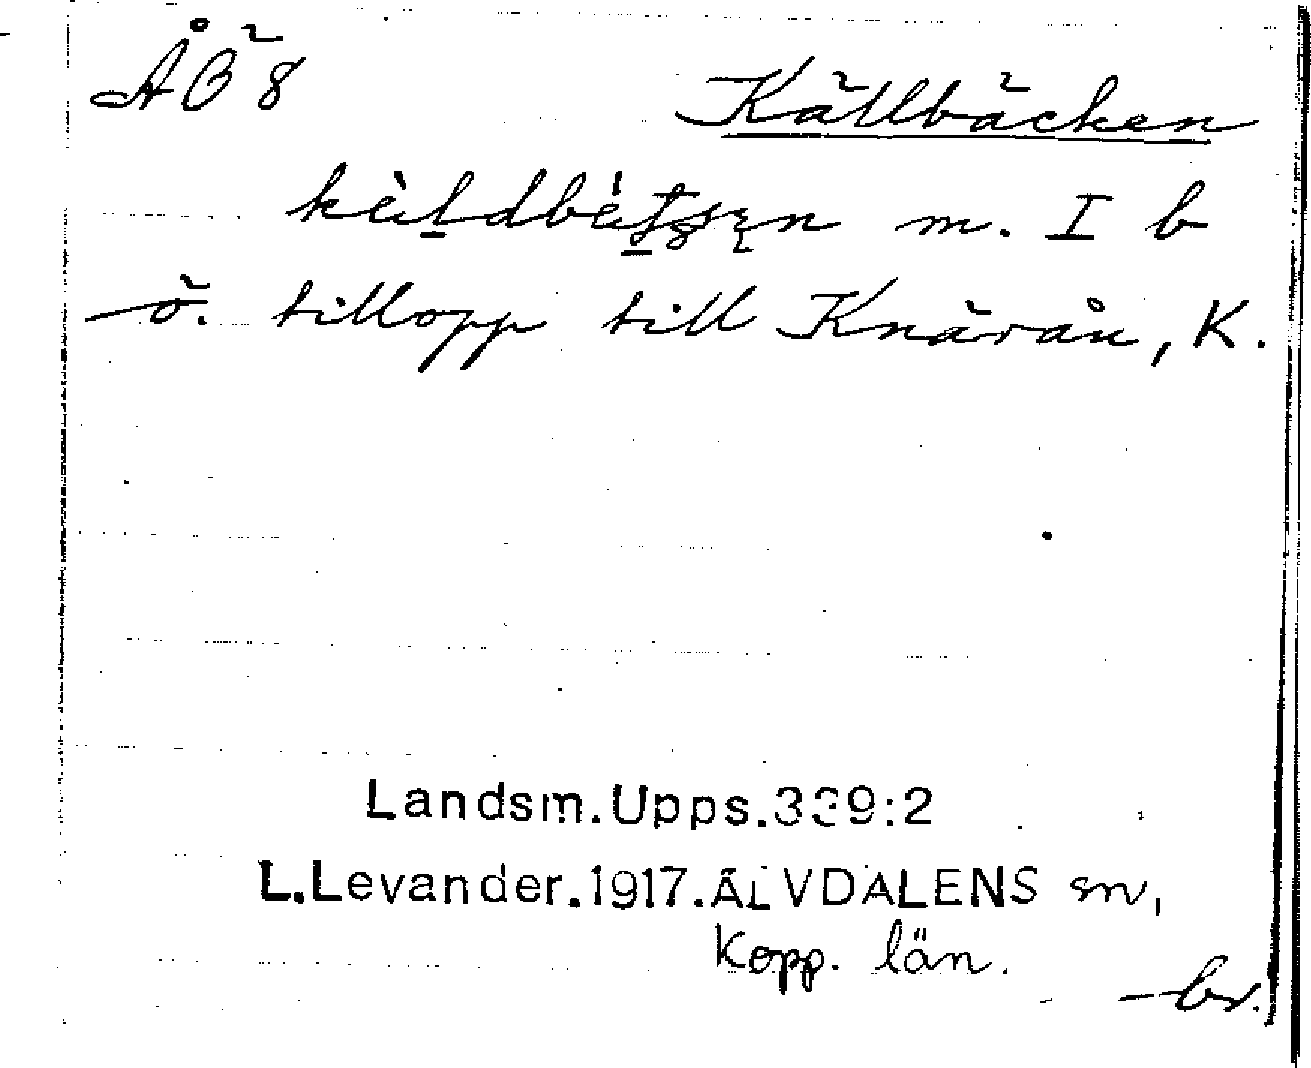 ÅÖ 8
Källbäcken
kèḷdbètsen m. I b
ö. tillopp till Knärån, K.
Landsm.Upps.339:2
L.Levander.1917.ÄLVDALENS sn,
Kopp. län.
br.